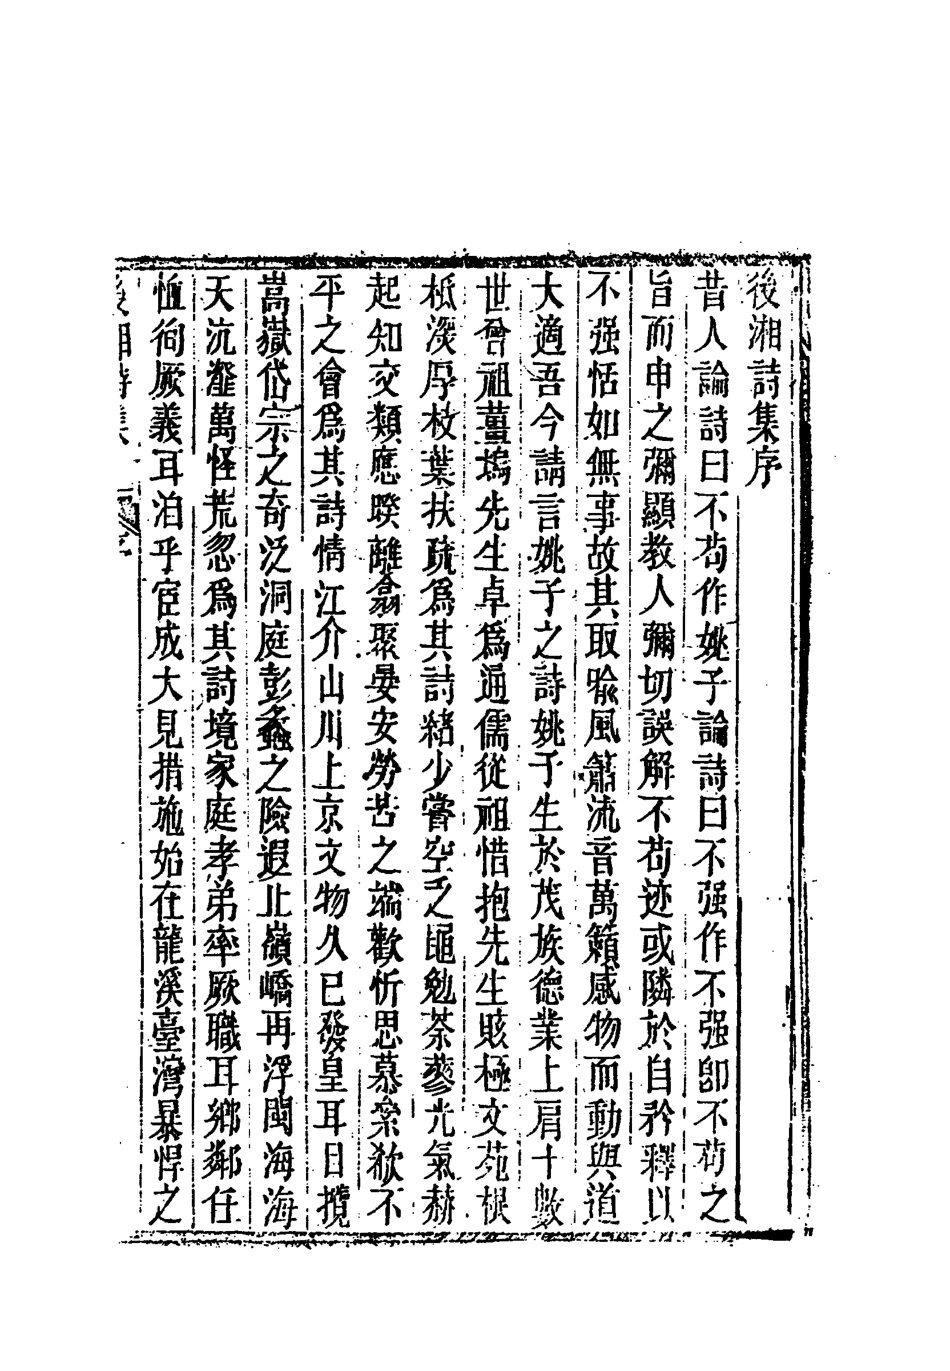 後湘詩集序
昔人論詩曰不苟作姚子論詩曰不强作不强卽不苟之
旨而申之彌顯教人彌切誤解不苟迹或隣於自矜釋以
不强恬如無事故其取喻風簫流音萬籟感物而動與道
大適吾今請言姚子之詩姚子生於茂族德業上肩十數
世曾祖薑塢先生卓爲通儒從祖惜抱先生賅極文苑根
柢深厚枝葉扶疏爲其詩緒少嘗空乏黽勉荼蓼光氣赫
起知交類應暌離翕聚晏安勞苦之端歡忻思慕喿欷不
平之會爲其詩情江介山川上京文物久已發皇耳目攬
嵩嶽岱宗之奇泛洞庭彭蠡之險遐止嶺嶠再浮閩海海
天沆瀣萬怪荒忽爲其詩境家庭孝弟率厥職耳鄉鄰任
恤徇厥義耳洎乎宦成大見措施始在龍溪臺灣暴悍之
後湘詩集